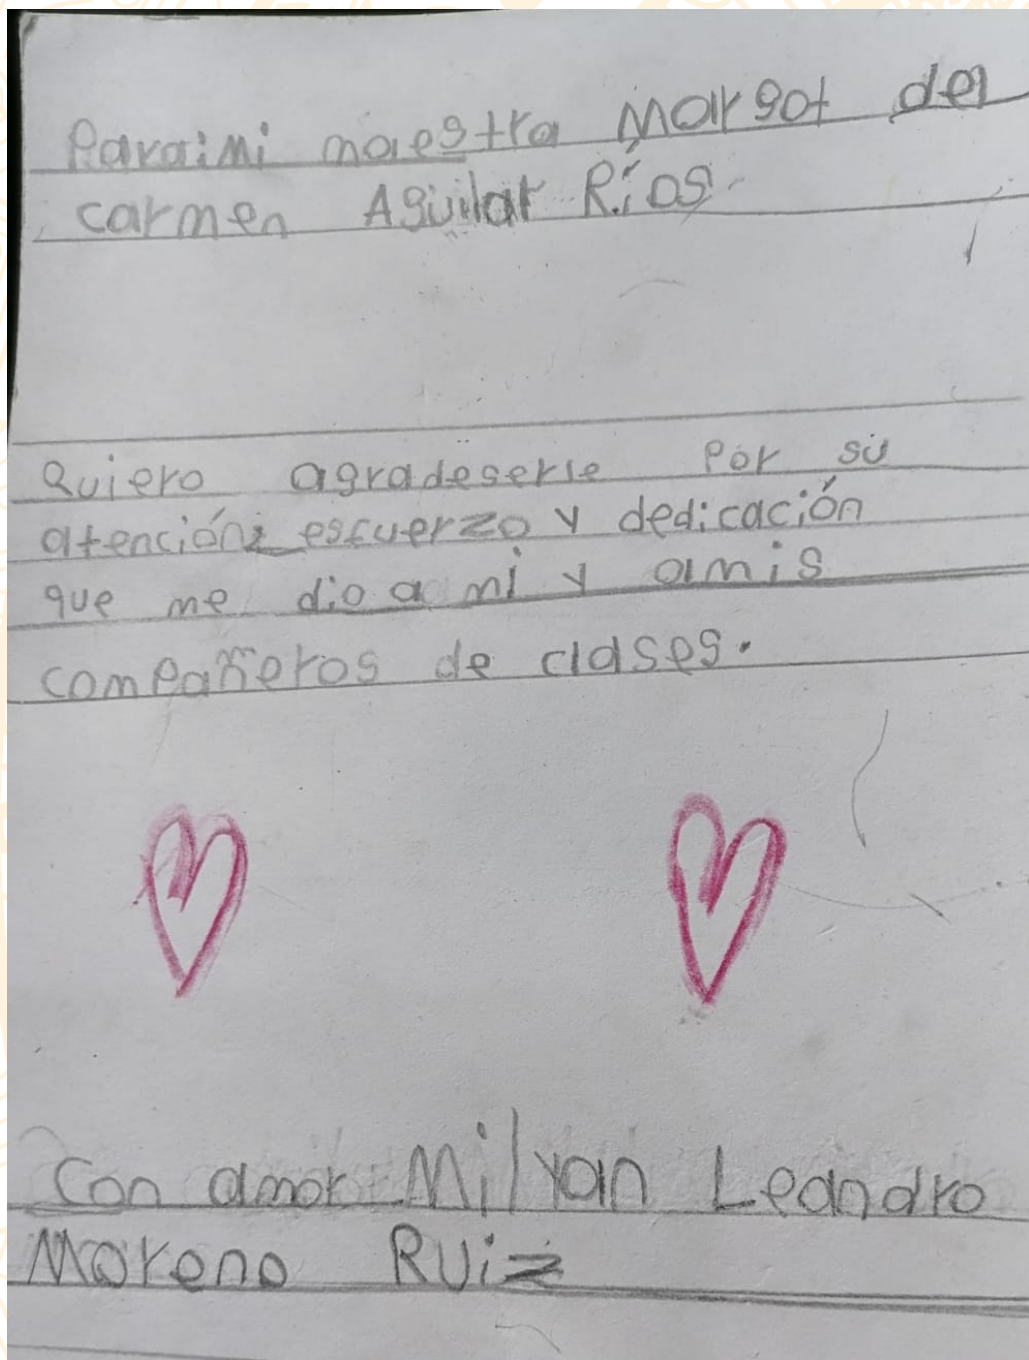 Para mi maestra Margot del
carmen Aguilar Ríos
Quiero agradeserle Por su
atención esfuerzo y dedicación
que me dio a mi y amis
compañeros de clases.
Con amor Milyan Leandro
Moreno Ruiz